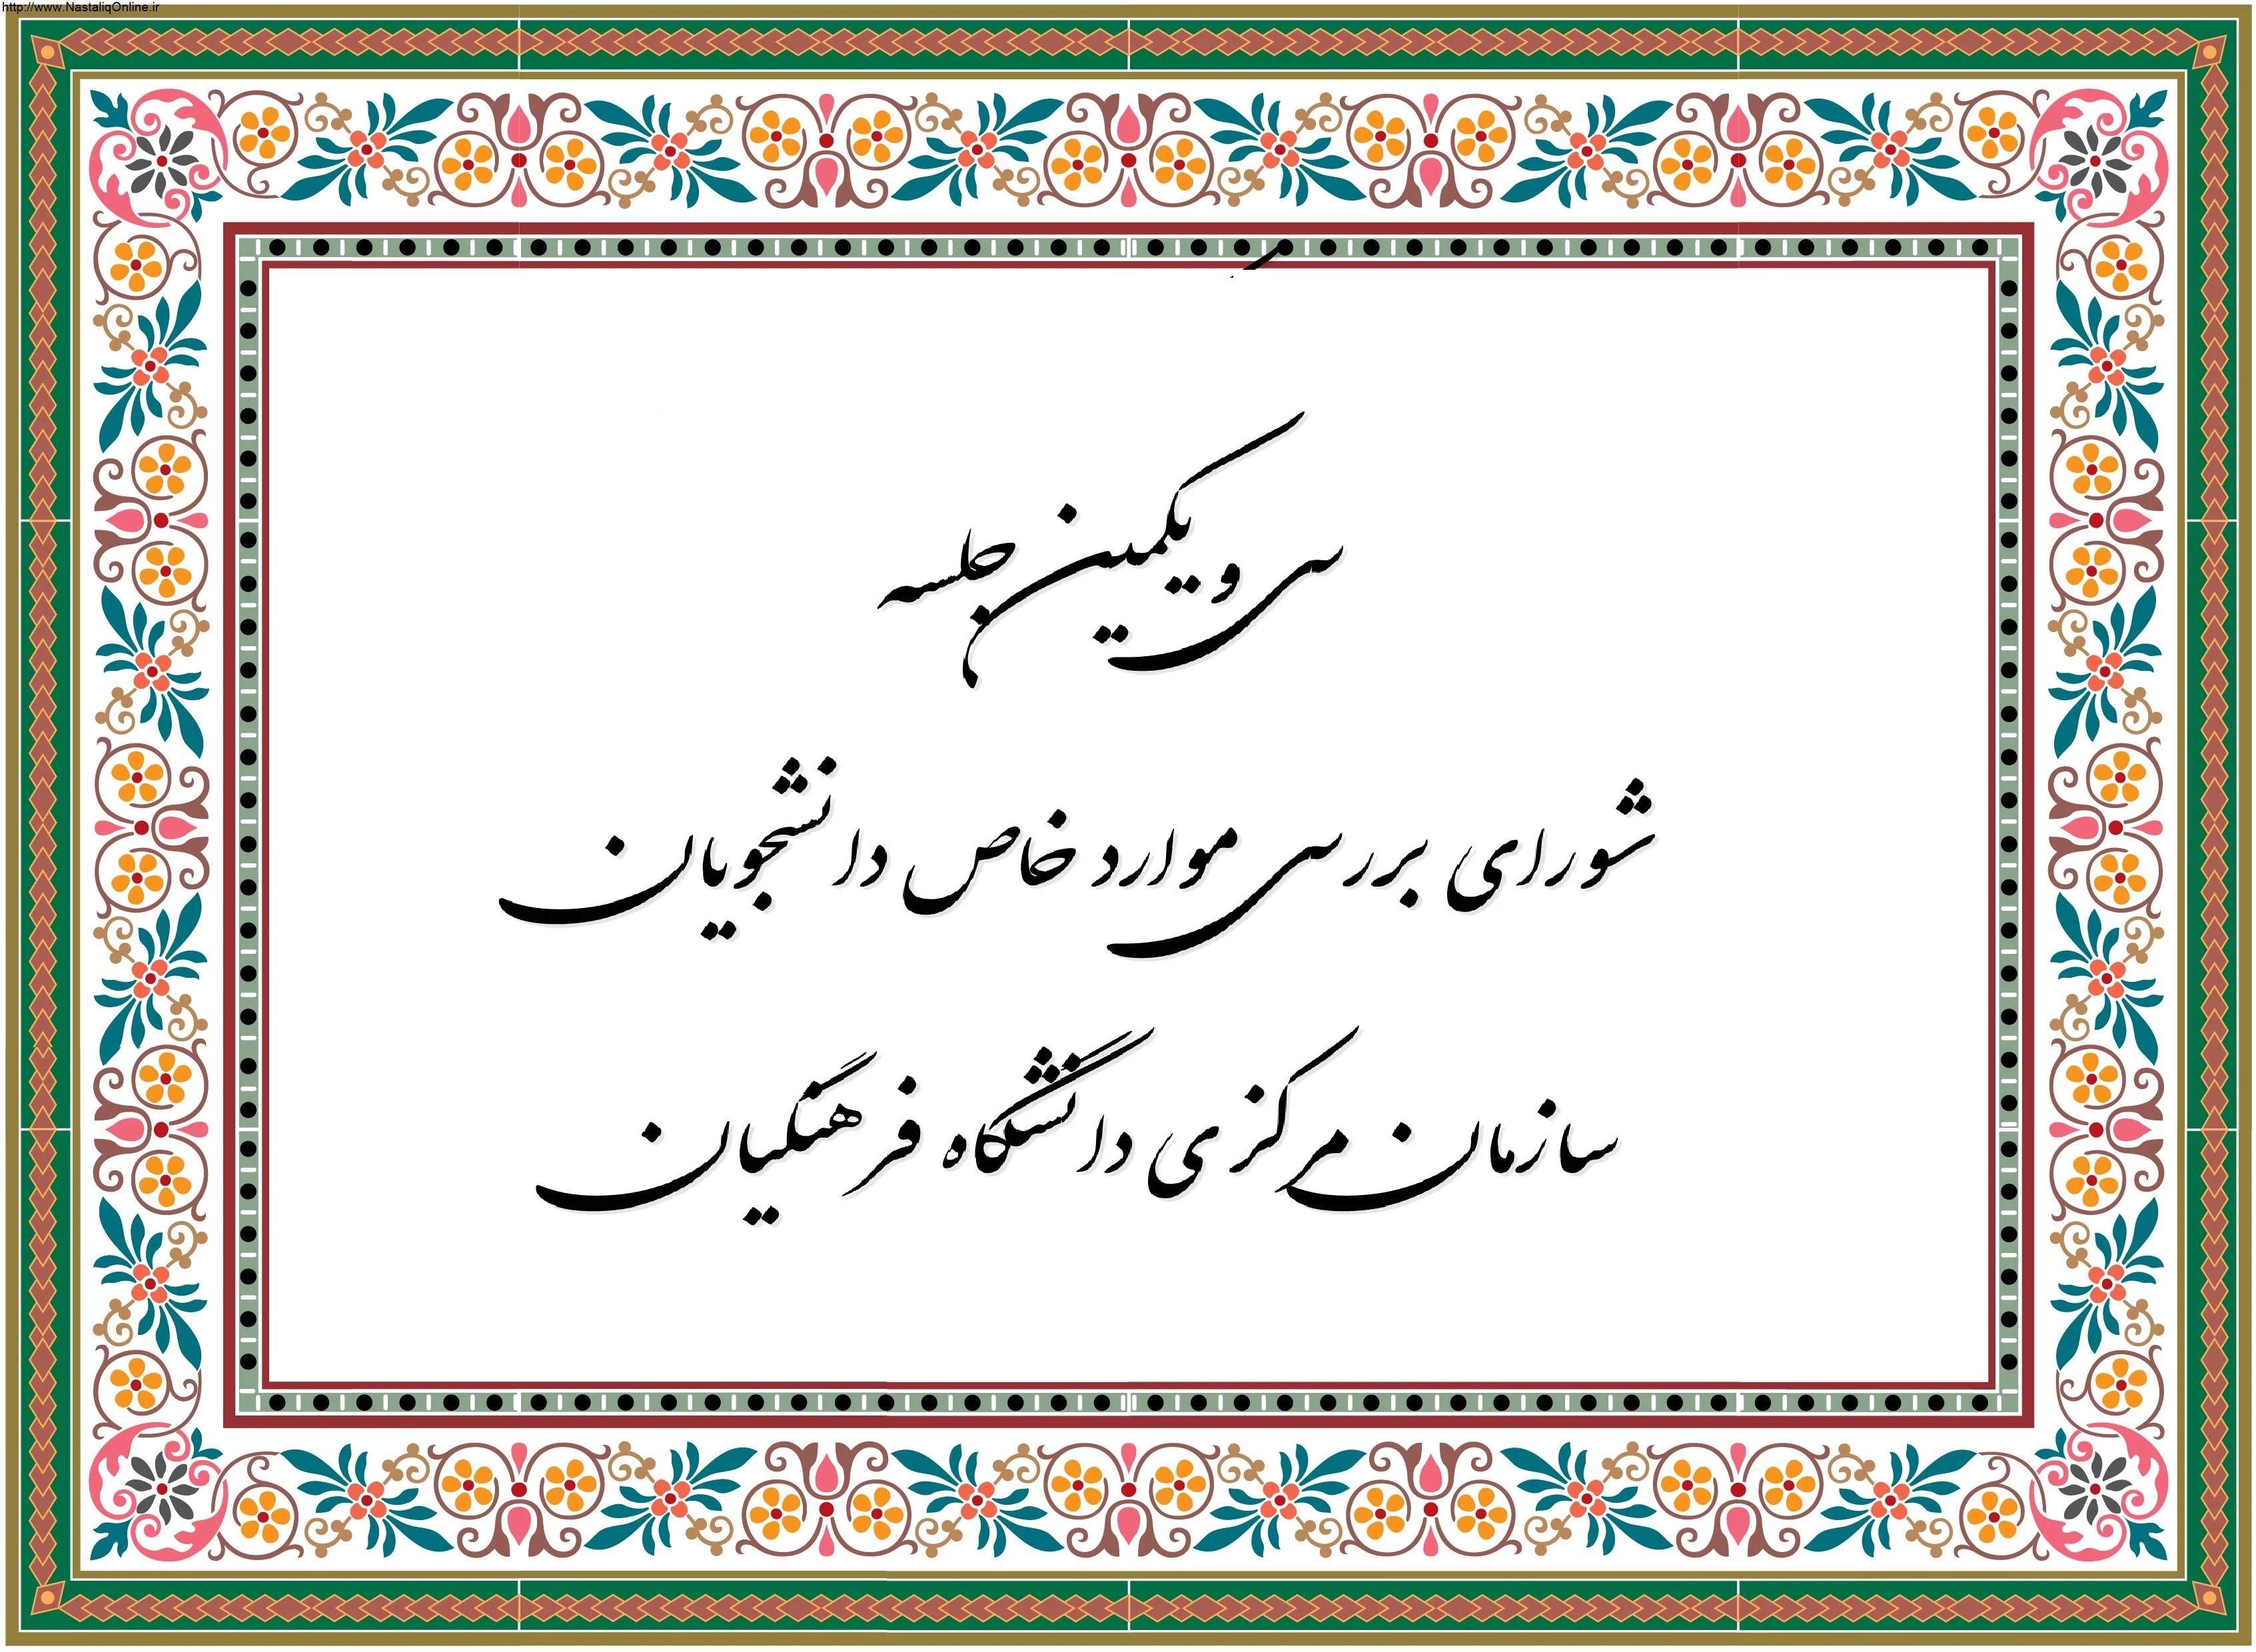 http://www.NastaliqOnline.ir
سی و یکمین جلسه
شورای بررسی موارد خاص دانشجویان
سازمان مرکزی دانشگاه فرهنگیان